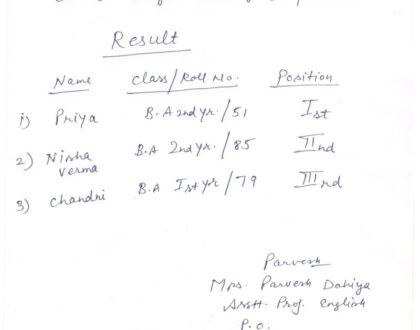 Result
Name Class/Roll No. Position
1) Priya B.A 2nd yr./51 Ist
2) Nisha B.A 2nd yr./85 IInd
Verma
3) Chandni B.A Ist yr/79 IIIrd
Parvesh
Mrs. Parvesh Dahiya
Asstt. Prof. English
P.O.